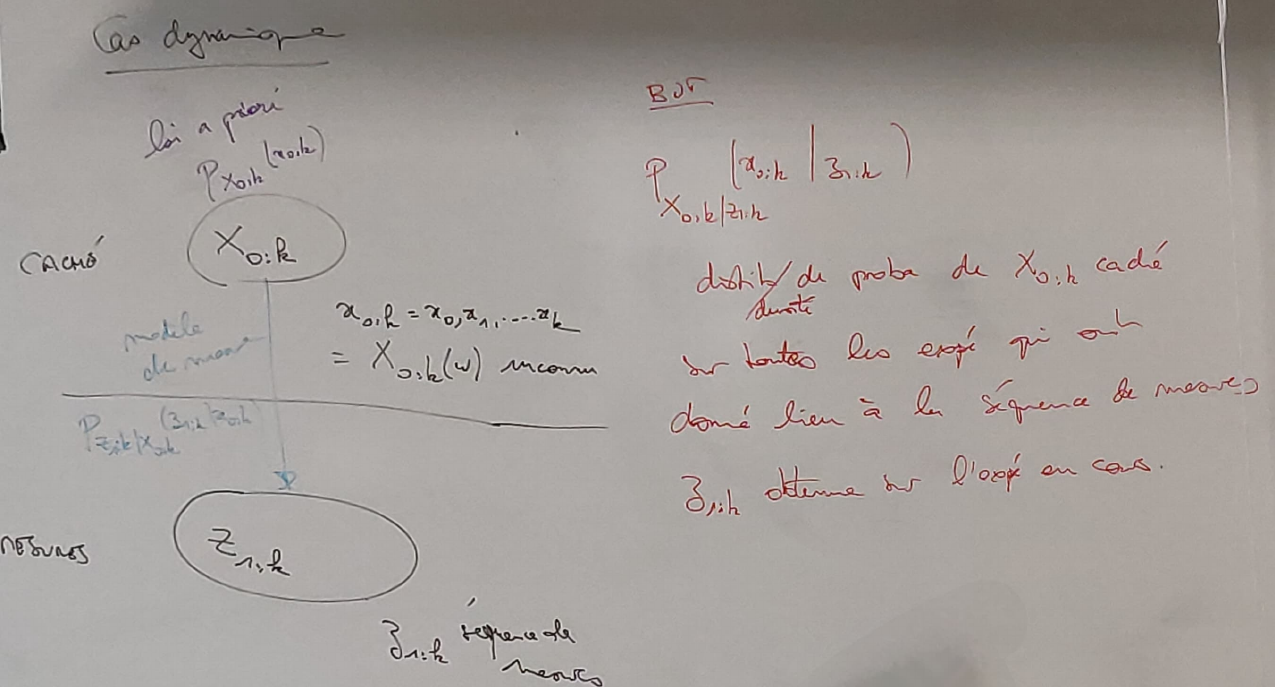 Cas dynamique
loi a priori
P_{X_{0:k}}(x_{0:k})
CACHÉ
X_{0:k}
x_{0:k} = x_0, x_1, .... x_k
= X_{0:k}(ω) inconnu
modèle
de mesure
P_{Z_{1:k}|X_{0:k}}(z_{1:k}|x_{0:k})
MESURES
Z_{1:k}
z_{1:k} séquence de
mesures
BUT
P_{X_{0:k}|Z_{1:k}}(x_{0:k} | z_{1:k})
distrib/ de proba de X_{0:k} caché
/densité
sur toutes les expé qui ont
donné lieu à la séquence de mesures
z_{1:k} obtenue sur l'expé en cours.